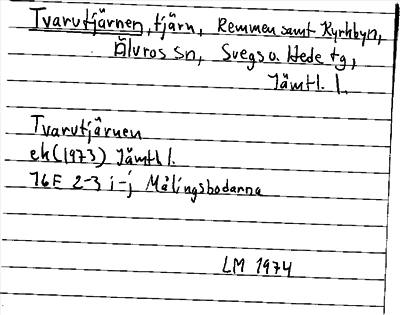 Tvarutjärnen, tjärn, Remmen samt Kyrkbyn,
Älvros sn, Svegs o. Hede tg,
Jämtl. l.
Tvarutjärnen
ek (1973) Jämtl l.
16E 2-3 i-j Målingsbodarna
LM 1974